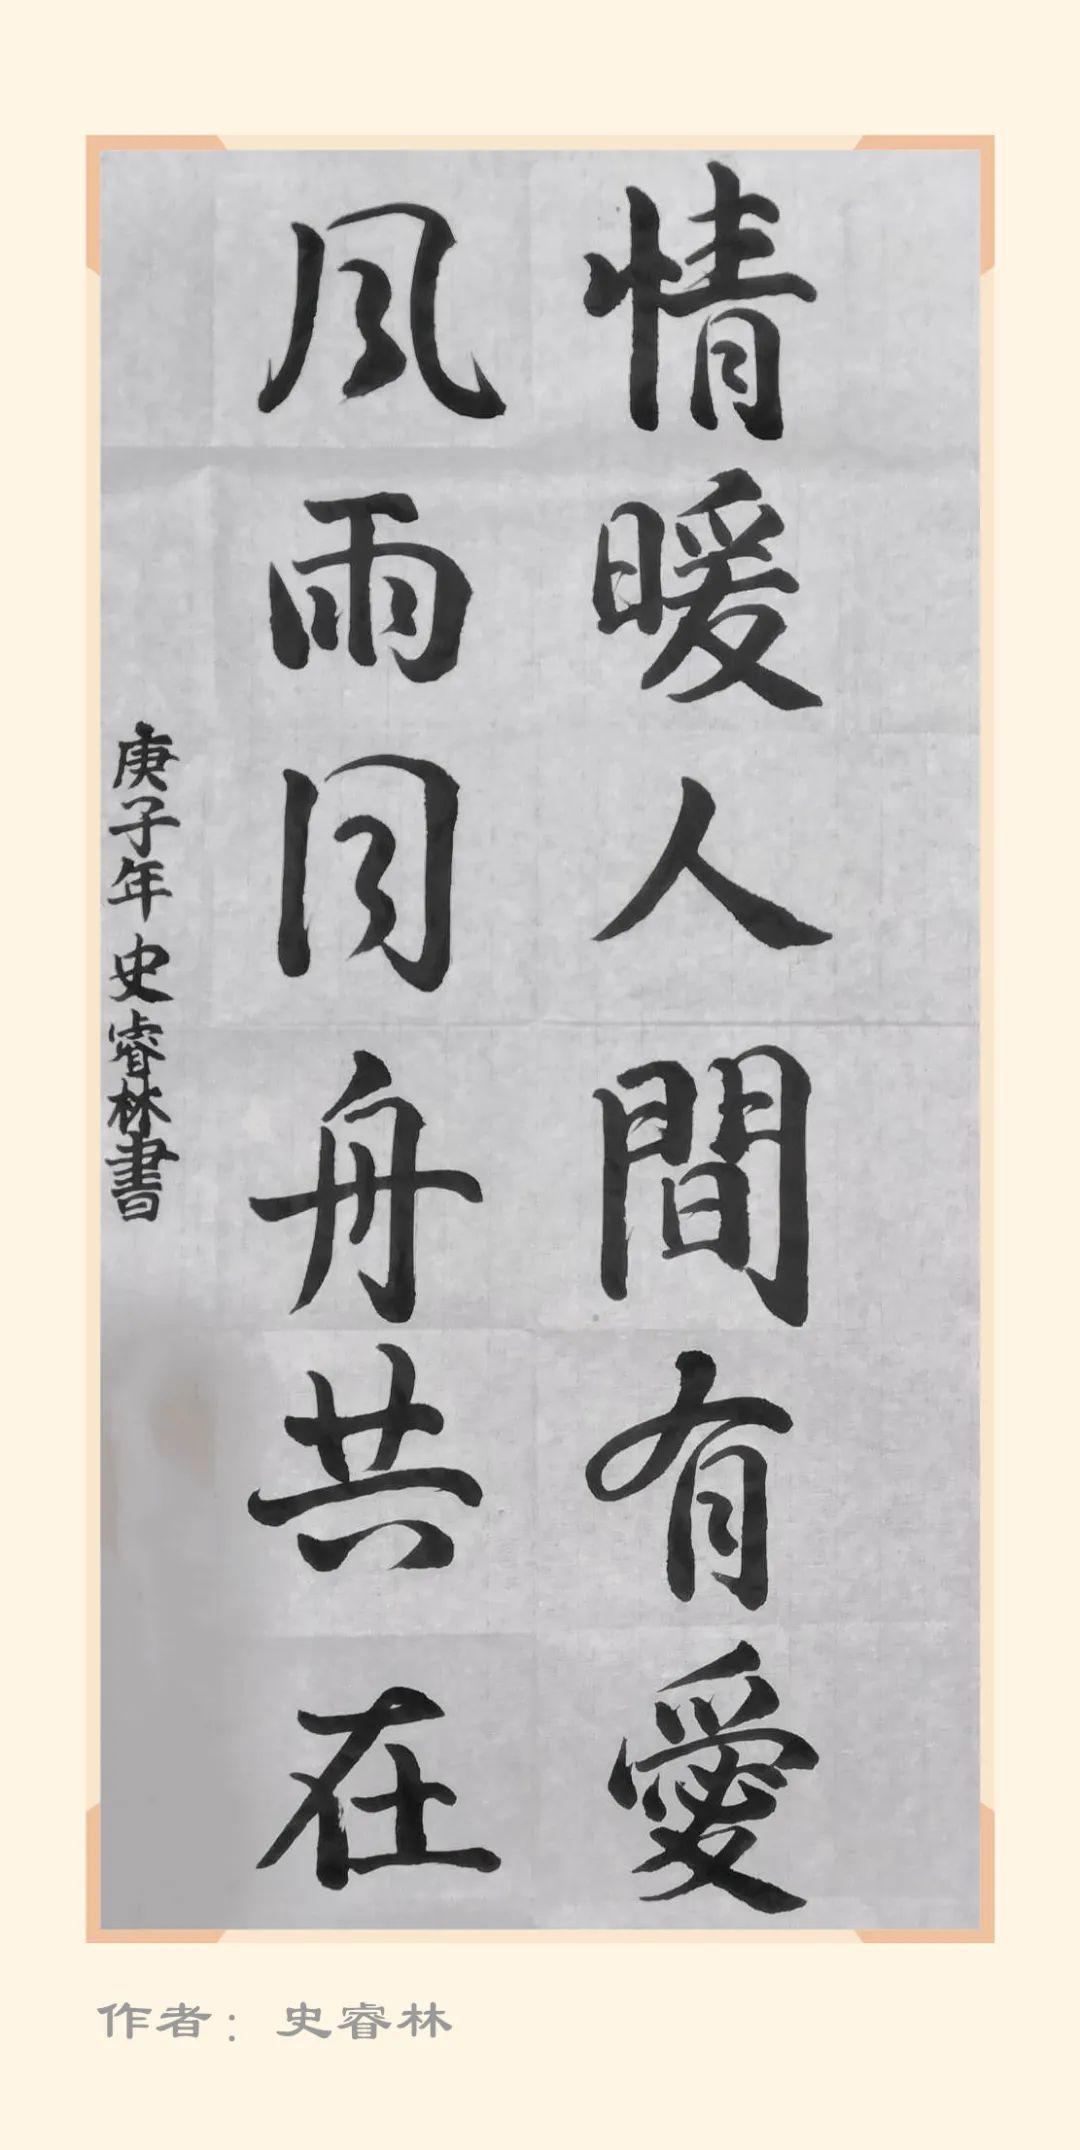 情暖人間有愛
风雨同舟共在
庚子年史睿林書
作者：史睿林